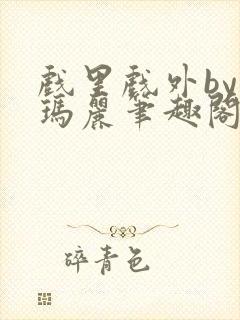 戲里戲外by
瑪麗筆趣閣
碎青色